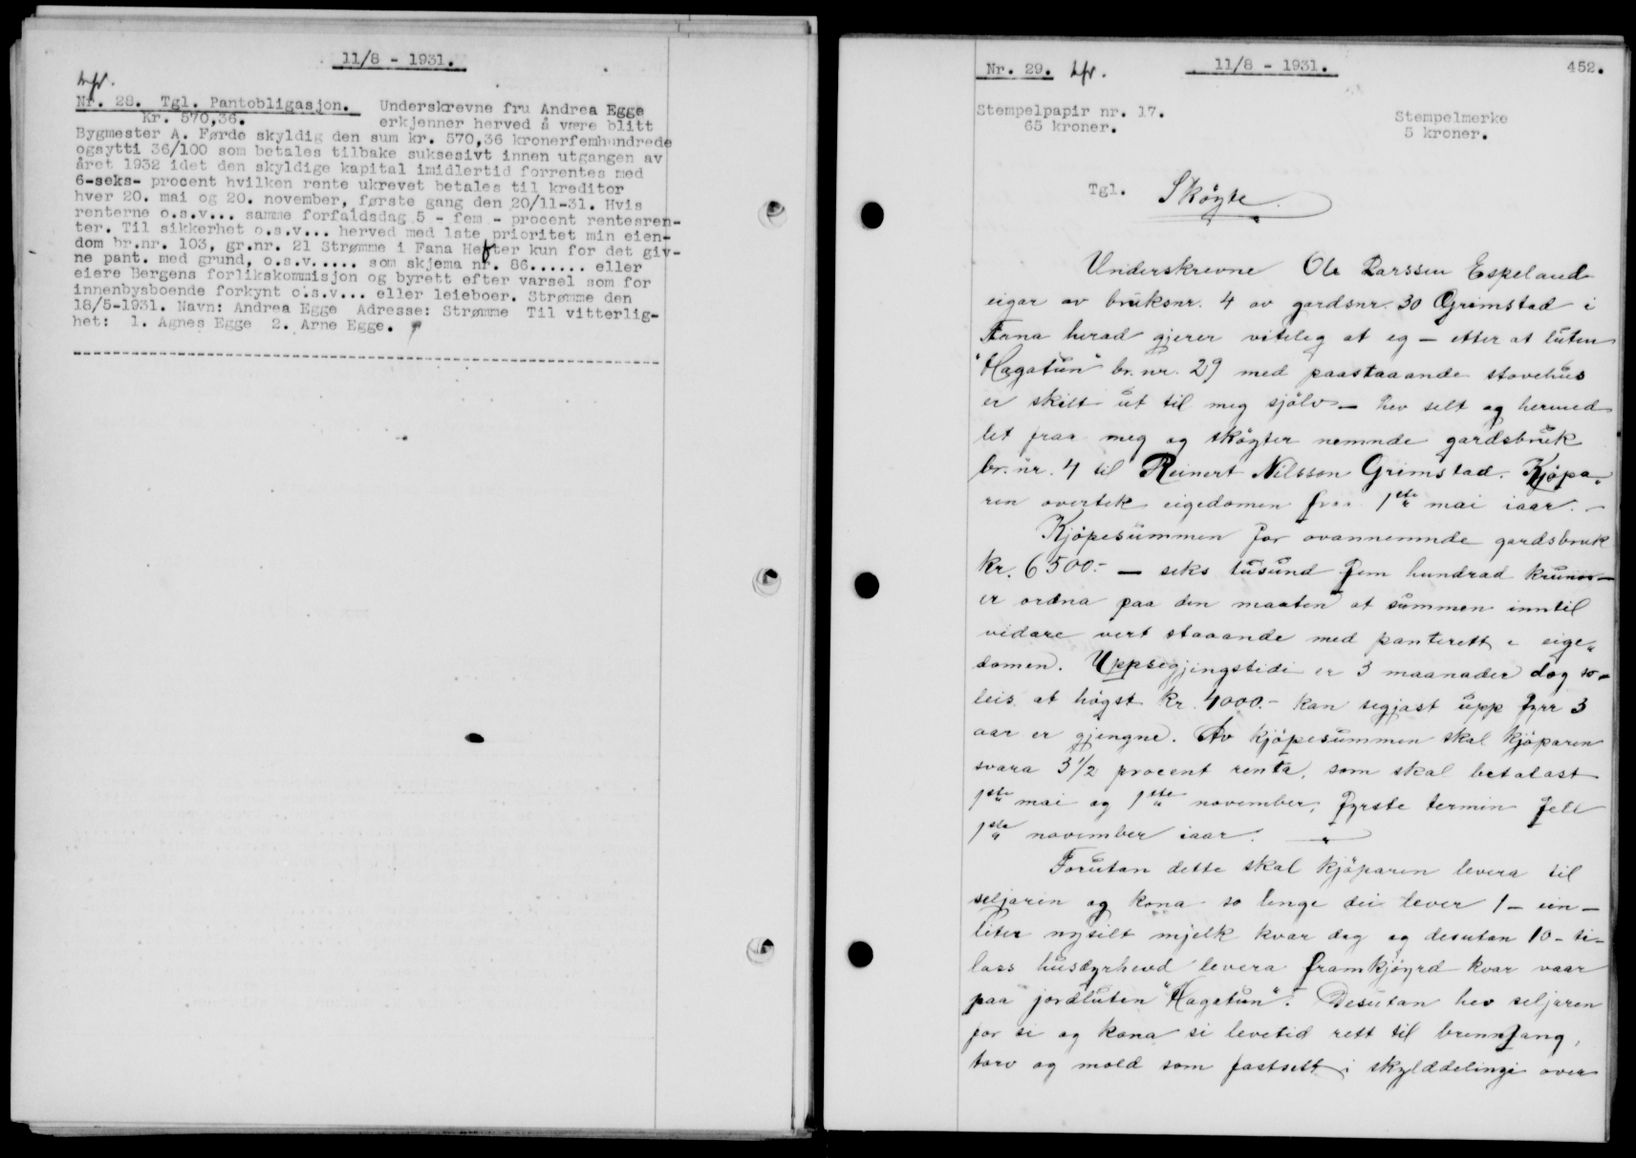 11/8 - 1931.
Nr. 28. Tgl. Pantobligasjon. Underskrevne fru Andrea Egge
Kr. 570,36. erkjenner herved å være blitt
Bygmester A. Førde skyldig den sum kr. 570,36 kronerfemhundrede
ogsytti 36/100 som betales tilbake suksesivt innen utgangen av
året 1932 idet den skyldige kapital imidlertid forrentes med
6-seks- procent hvilken rente ukrevet betales til kreditor
hver 20. mai og 20. november, første gang den 20/11-31. Hvis
renterne o.s.v... samme forfaldsdag 5 - fem - procent rentesren-
ter. Til sikkerhet o.s.v... herved med 1ste prioritet min eien-
dom br.nr. 103, gr.nr. 21 Strømme i Fana Hefter kun for det giv-
ne pant. med grund, o.s.v..... som skjema nr. 86...... eller
eiere Bergens forlikskommisjon og byrett efter varsel som for
innenbysboende forkynt o.s.v... eller leieboer. Strømme den
18/5-1931. Navn: Andrea Egge Adresse: Strømme Til vitterlig-
het: 1. Agnes Egge 2. Arne Egge.
Nr. 29. 11/8 - 1931. 452.
Stempelpapir nr. 17. Stempelmerke
65 kroner. 5 kroner.
Tgl. Skøyte.
Underskrevne Ole Larssen Espeland
eigar av bruksnr. 4 av gardsnr. 30 Grimstad i
Fana herad gjerer viteleg at eg - etter at luten
"Hagatun" br. nr. 29 med paastaaande stovehus
er skilt ut til meg sjølv - hev selt og hermed
let fraa meg og skøyter nemnde gardsbruk
br. nr. 4 til Reinert Nilsson Grimstad. Kjøpa-
ren overtek eigedomen fraa 1ste mai iaar. -
Kjøpesummen for ovannemnde gardsbruk
kr. 6500.- - seks tusund fem hundrad krunor -
er ordna paa den maaten at summen inntil
vidare vert staaande med panterett i eige-
domen. Uppsegjingstidi er 3 maanader dog so-
leis at høgst kr. 4000.- kan segjast upp fyrr 3
aar er gjengne. Av kjøpesummen skal kjøparen
svara 3 1/2 procent renta, som skal betalast
1ste mai og 1ste november, fyrste termin fell
1ste november iaar.
Forutan dette skal kjøparen levera til
seljaren og kona so lenge dei lever 1 - ein -
liter nysilt mjelk kvar dag og desutan 10 - ti -
lass husdyrhevd levera framkjøyrd kvar vaar
paa jordluten "Hagatun". Desutan hev seljaren
for si og kona si levetid rett til brennfang,
torv og mold som fastsett i skylddelingi over